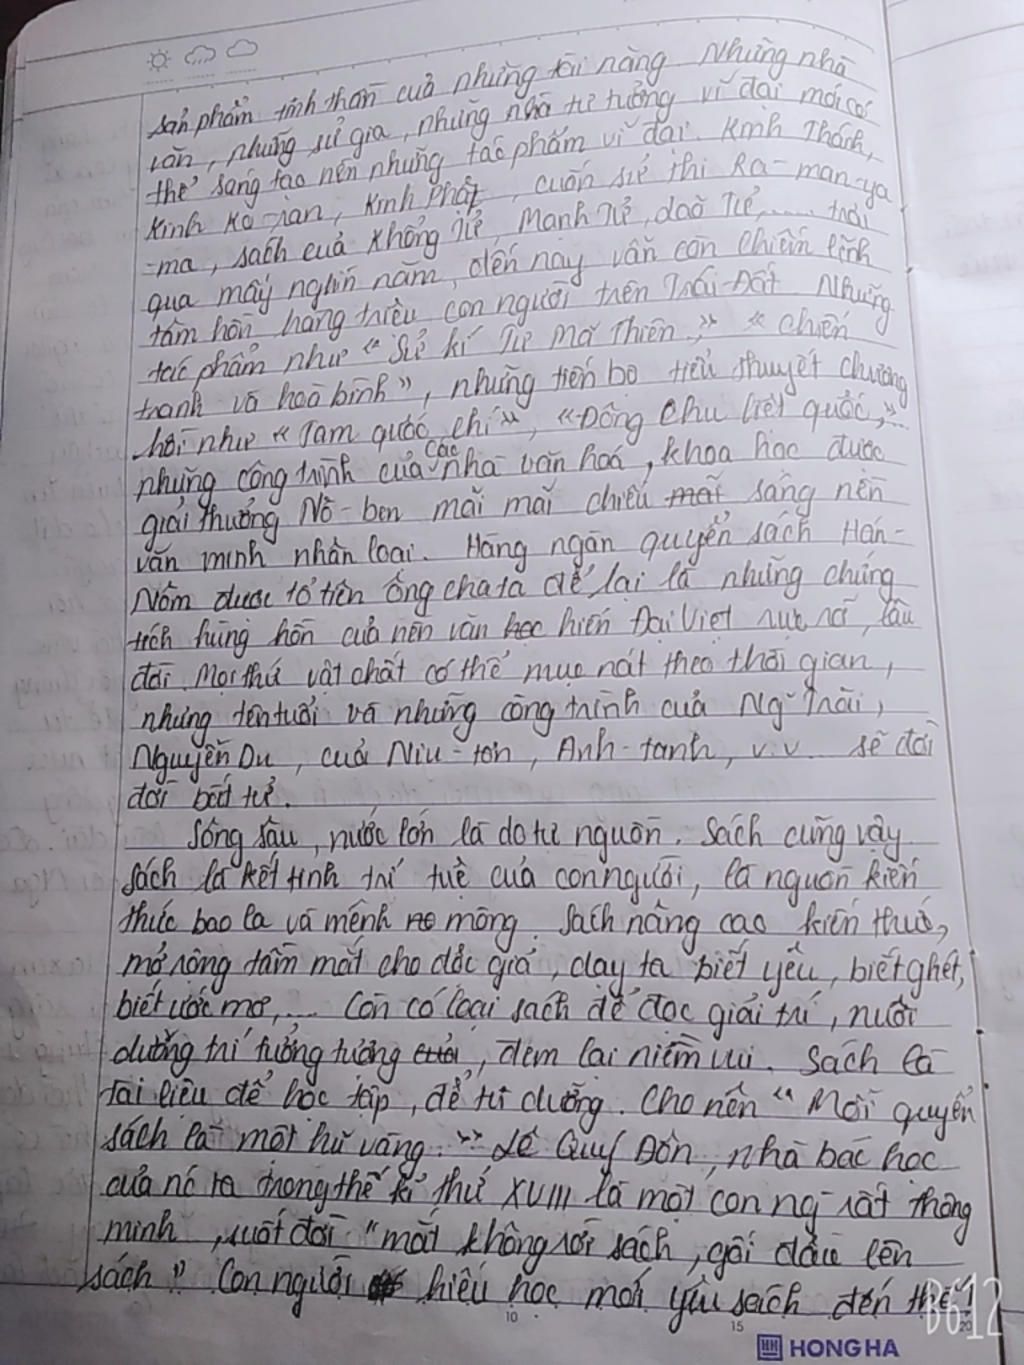 sản phẩm tinh thần của những tài năng Những nhà
văn, những sử gia, những nhà tư tưởng vĩ đại mới có
thể sáng tạo nên những tác phẩm vĩ đại. Kinh Thánh,
Kinh Kô-ran, Kinh Phật, cuốn sử thi Ra-man-ya
-ma, sách của Khổng Tử, Mạnh Tử, Lão Tử, ..... trải
qua mấy nghìn năm, đến nay vẫn còn chiếm lĩnh
tâm hồn hàng triệu con người trên Trái Đất Những
tác phẩm như "Sử kí Tư Mã Thiên", "Chiến
tranh và hoà bình", những tiến bộ tiểu thuyết chương
hồi như "Tam quốc chí", "Đông Chu liệt quốc",...
những công trình của các nhà văn hoá, khoa học được
giải thưởng Nô-ben mãi mãi chiếu mát sáng nền
văn minh nhân loại. Hàng ngàn quyển sách Hán-
Nôm được tổ tiên ông cha ta để lại là những chứng
tích hùng hồn của nền văn học hiến Đại Việt rực rỡ, lâu
đời. Mọi thứ vật chất có thể mục nát theo thời gian,
nhưng tên tuổi và những công trình của Ng~ Trãi,
Nguyễn Du, của Niu-tơn, Anh-tanh, v.v... sẽ đời
đời bất tử.
Sông sâu, nước lớn là do từ nguồn. Sách cũng vậy.
Sách là kết tinh trí tuệ của con người, là nguồn kiến
thức bao la và mênh mô mông. Sách nâng cao kiến thức,
mở rộng tầm mắt cho độc giả, dạy ta biết yêu, biết ghét,
biết ước mơ,.... Còn có loại sách để đọc giải trí, nuôi
dưỡng trí tưởng tượng của, đem lại niềm vui. Sách là
tài liệu để học tập, để tu dưỡng. Cho nên "Mỗi quyển
sách là một hũ vàng." Lê Quý Đôn, nhà bác học
của nc ta trong thế kỉ thứ XVIII là một con ng~ rất thông
minh, suốt đời "mắt không rời sách, gối đầu lên
sách" Con người hiếu học mới yêu sách đến thế!
10
15
20
HONG HA
B612